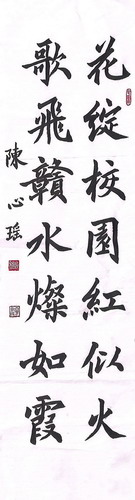 花綻校園紅似火
歌飛贛水燦如霞
陳心瑶